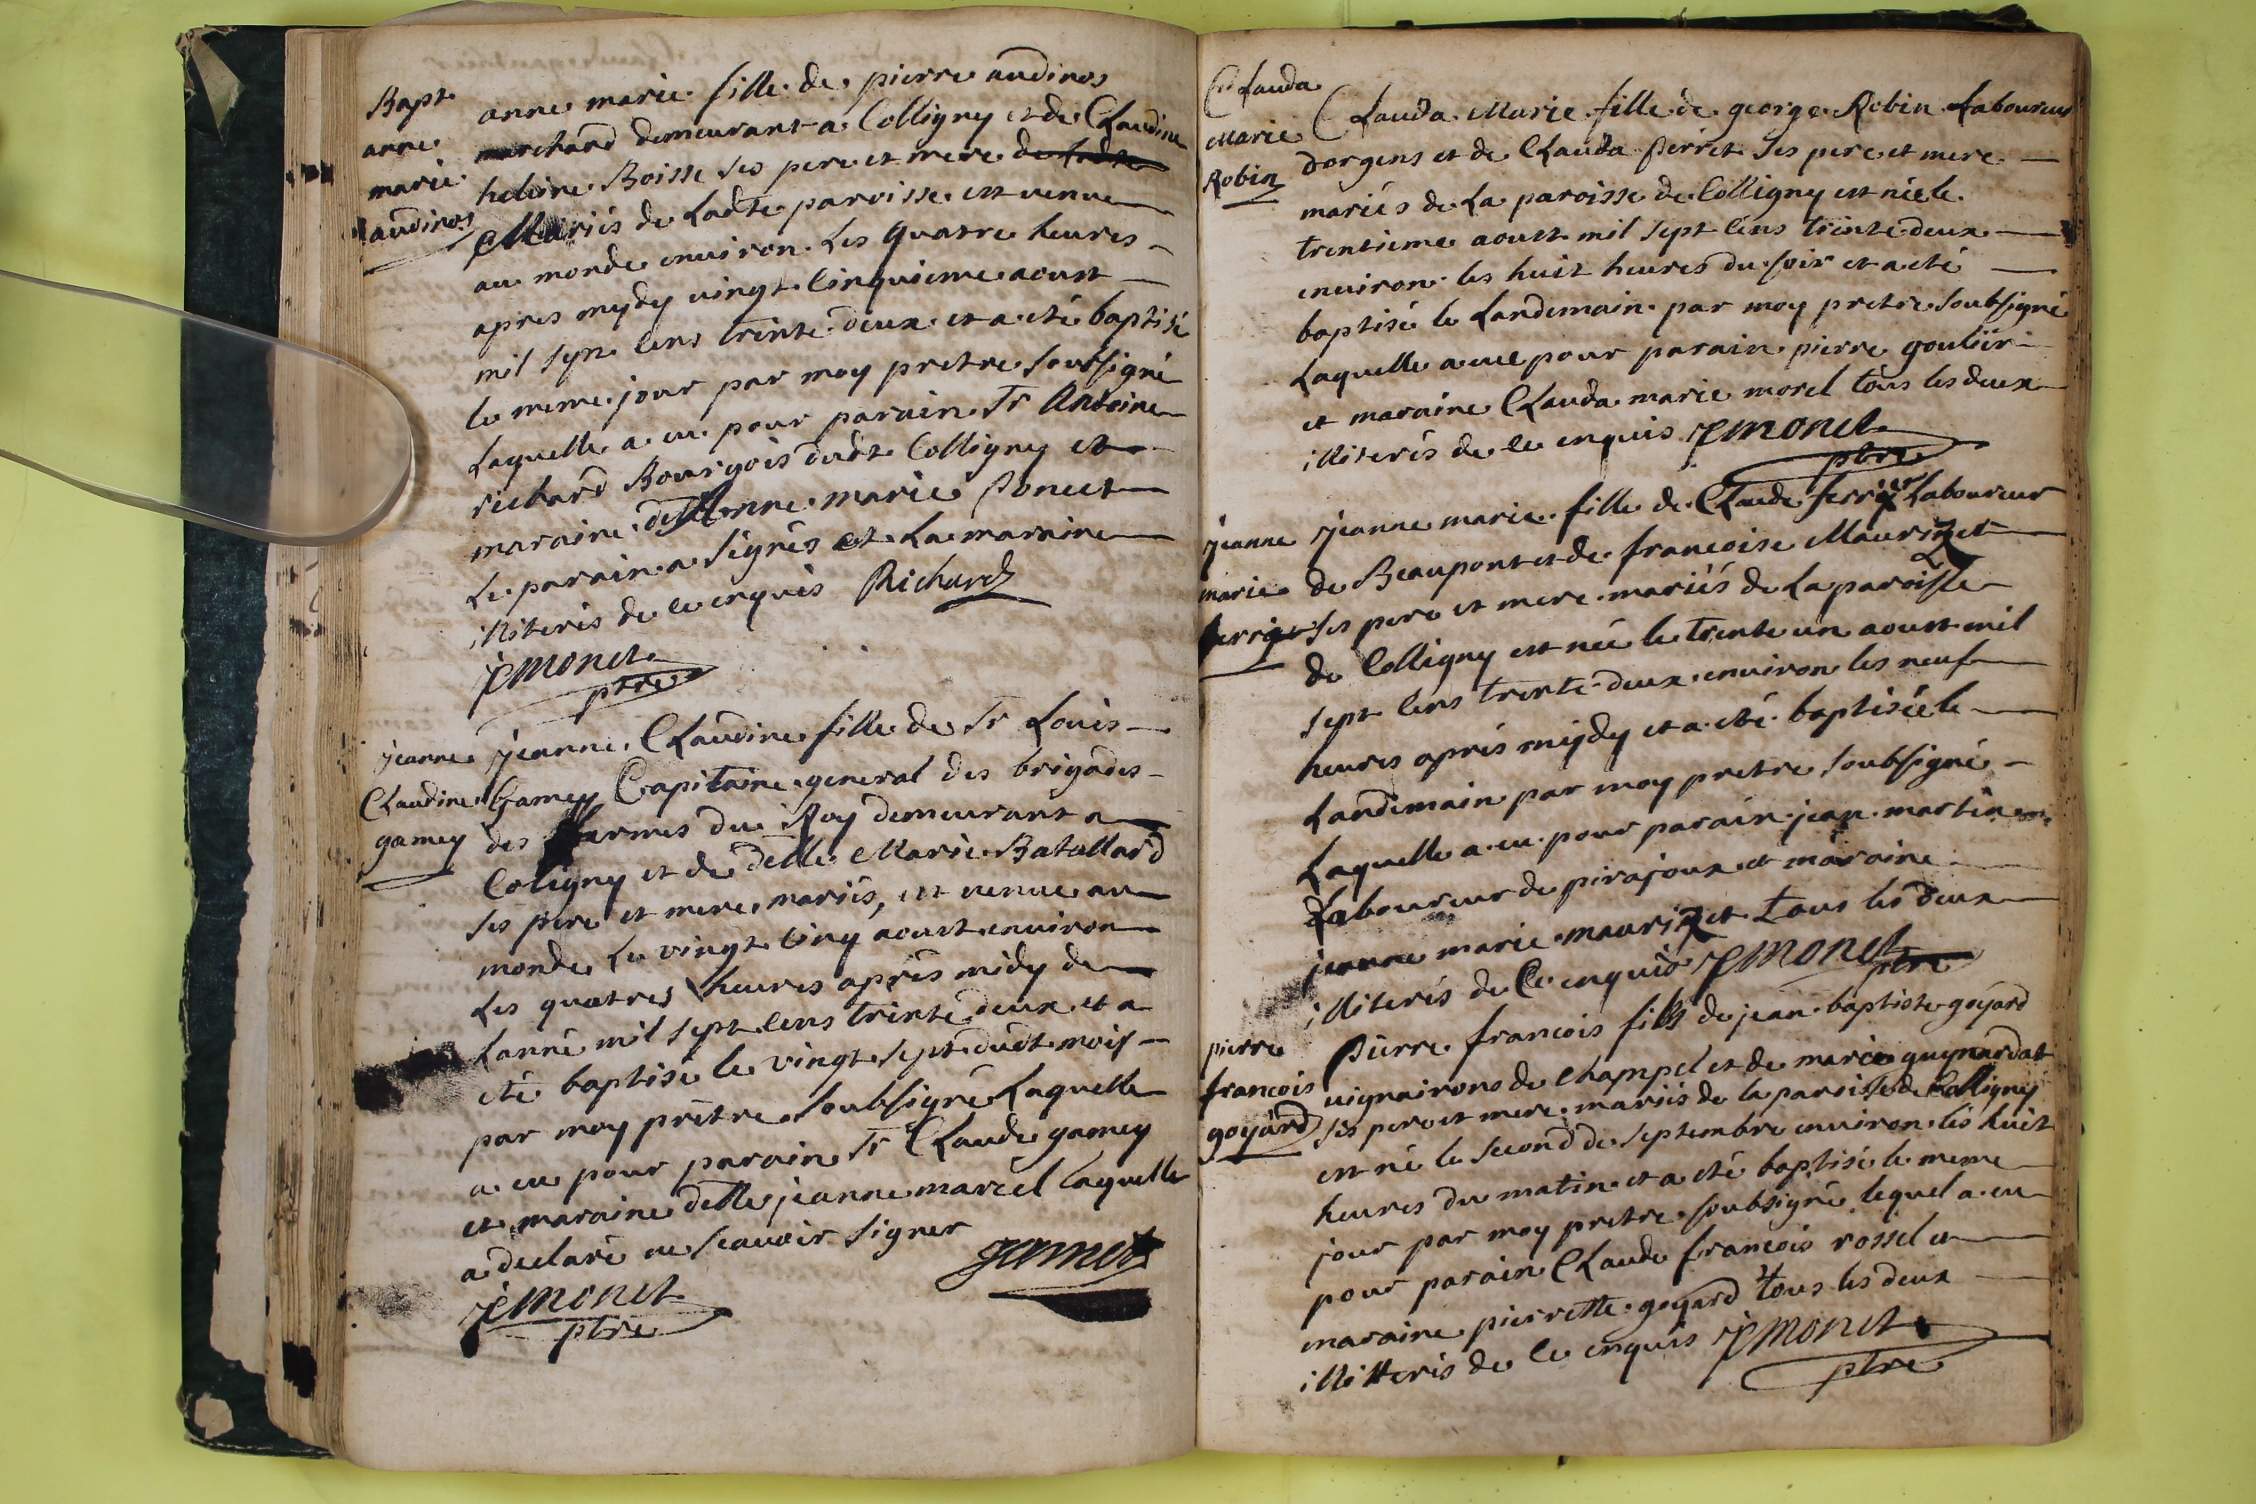 Bapt
anne
marie
audinos
anne marie fille de pierre audinos
marchand demeurant a Colligny et de Claudine
heleine Boisse ses pere et mere
Mariés de Ladte paroisse est venue
au monde environ Les quatre heures
apres mydy vingt Cinquieme aoust
mil sept cens trente deux et a eté baptisé
le meme jour par moy pretre soubsigné
Laquelle a eu pour parain Sr Antoine
richard Bourgois dudt Colligny et
maraine delle Anne marie Poncet
Le parain a signés et La maraine
illiterés de ce enquis Richard
JE monet
ptre
jeanne
Claudine
gamey
jeanne Claudine fille de Sr Louis
Gamey Capitaine general des brigades
des fermes du Roy demeurant a
Coligny et de delle Marie Batallard
ses pere et mere mariés, est venue au
monde Le vingt cinq aoust environ
Les quatres heures après midy de
Lanné mil sept cens trente deux et a
eté baptisé le vingt sept dudt mois
par moy prêtre soubsigné Laquelle
a eu pour parain Sr Claude gamey
et maraine delle jeanne marcel laquelle
a declaré ne scavoir signer
JE monet
ptre
gamet
Clauda
Marie
Robin
Clauda Marie fille de george Robin Laboureur
dorgens et de Clauda Perret ses pere et mere
mariés de La paroisse de Colligny est née le
trentieme aoust mil sept cens trente deux
environ les huit heures du soir et a eté
baptisé le Landemain par moy pretre soubsigné
Laquelle a eue pour parain pierre goutier
et maraine Clauda marie morel tous les deux
illiterés de ce enquis JE monet
ptre
jeanne
marie
jeanne marie fille de Claude Laboureur
de Beaupont et de francoise Maurizet
ses pere et mere mariés de La paroisse
de Colligny est née le trente un aoust mil
sept cens trente deux environ les neuf
heures aprés mijdy et a eté baptisée le
Landemain par moy pretre soubsigné
Laquelle a eu pour parain jean martin
Laboureur de pirajoux et maraine
jeanne marie maurizet tous les deux
illiterés de Ce enquis JE monet
ptre
pierre
francois
goyard
Pierre francois fils de jean baptiste goyard
vignairons de Champel et de marie guynardat
ses pere et mere mariés de la paroisse de Colligny
est né le second de septembre environ les huit
heures du matin et a eté baptisé le meme
jour par moy pretre soubsigné lequel a eu
pour parain Claude francois rossel et
maraine pierrette goyard tous les deux
illitterés de ce enquis JE monet
ptre